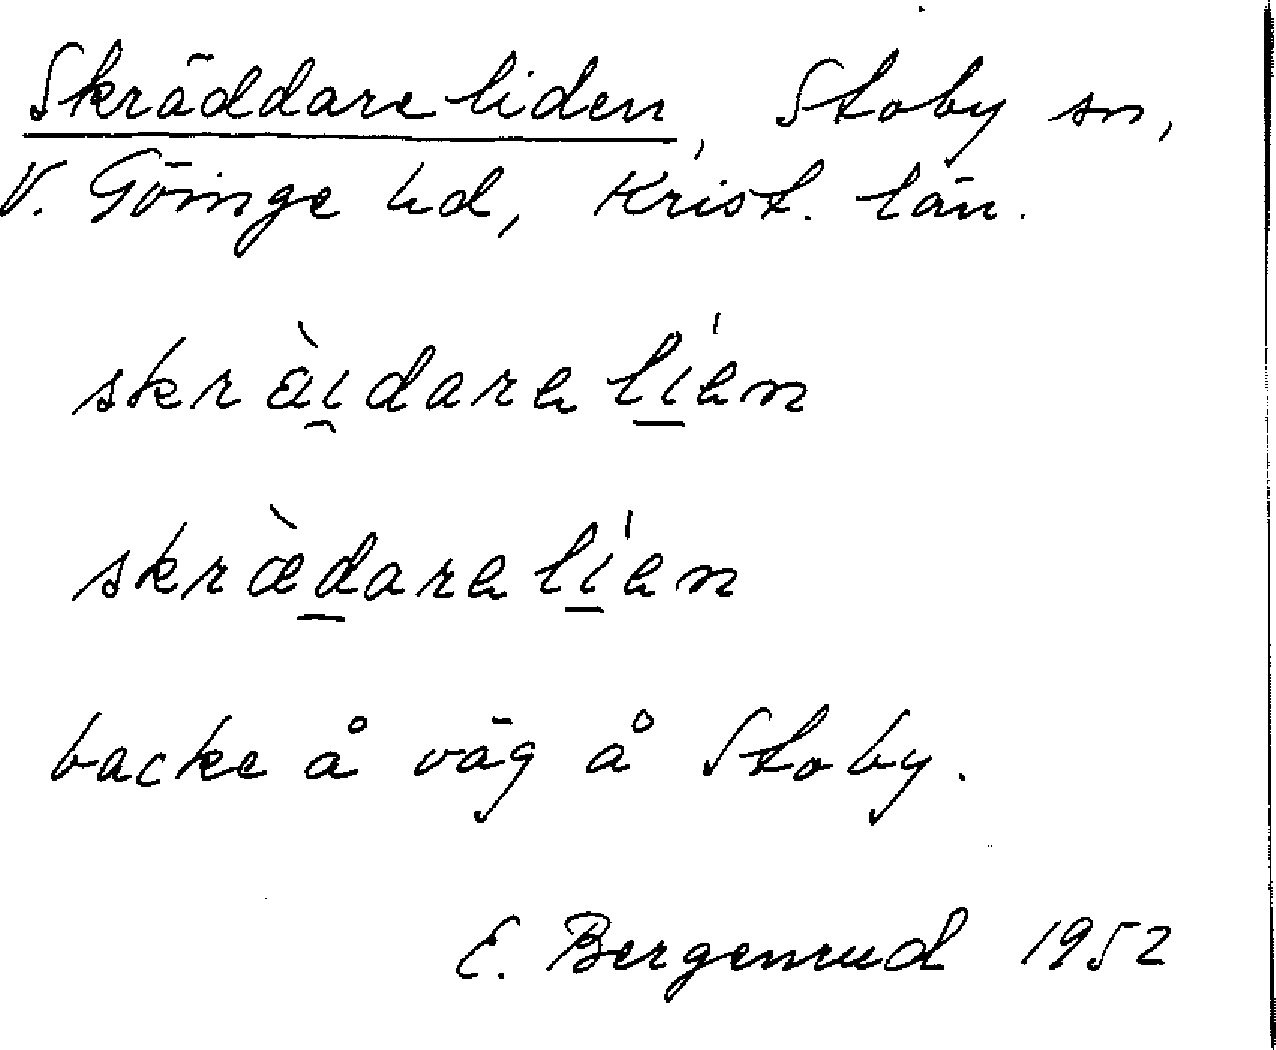 Skräddareliden, Stoby sn,
V. Göinge hd, Krist. län.
skràɩ̯darelíen
skræ̀darelíen
backe å väg å Stoby.
E. Bergenrud 1952